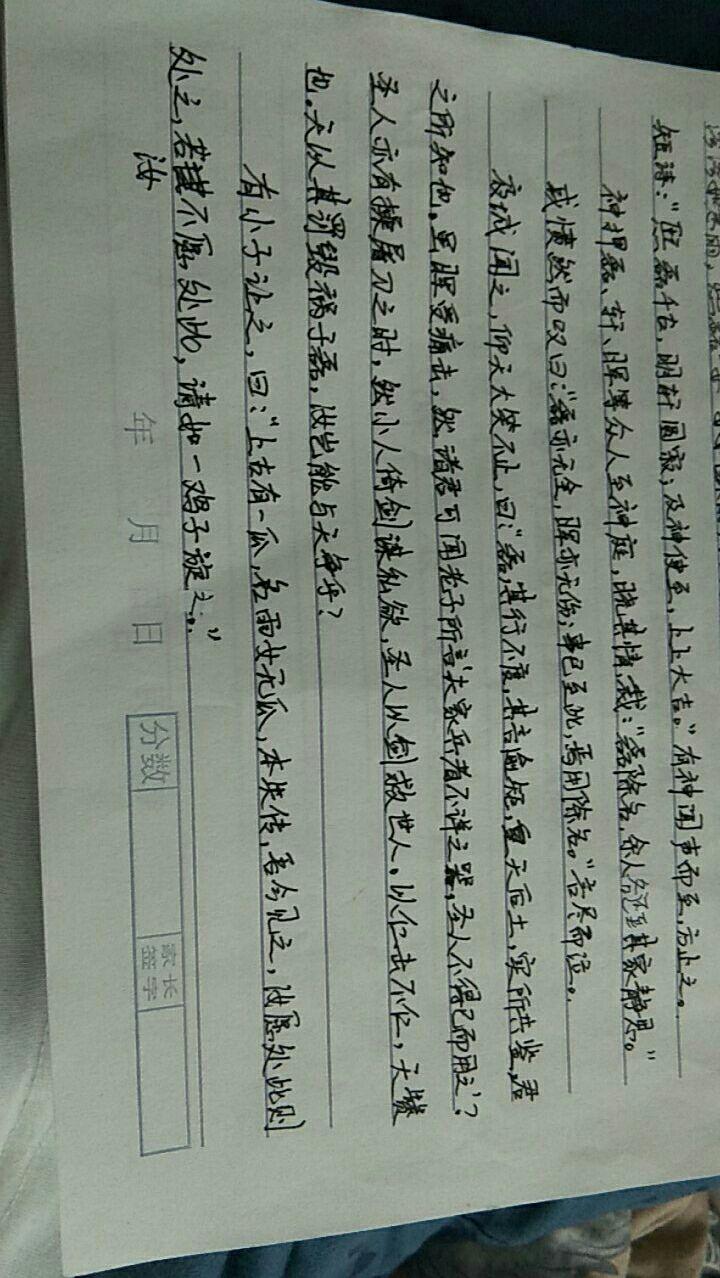 短诗：“照磊千古，明轩圆寂；及神使至，上上大吉。”有神闻声而至，方止之。
神押磊、轩、晖等众人至神庭，晓其情，裁：“磊除名，余人各还至其家静思。”
或愤然而叹曰：“磊亦无全，晖亦无伤；事已至此，焉用除名。”言尽而泣。
及城闻之，仰天大笑不止，曰：“磊，其行不度，其言逾矩，皇天后土，实所共鉴，君
之所知也。虽晖受痛击，然诸君可闻老子所言大家‘兵者不详之器，圣人不得已而用之’？
圣人亦有操屠刀之时，然小人倚剑谋私欲，圣人以剑救世人。以仁击不仁，天
也。天以其谓毁祸子磊，汝岂能与天争乎？
有小子让之，曰：“上古有一瓜，名雨女无瓜，本失传，吾今见之，汝愿处此则
处之，若汝不愿处此，请如一鸡子旋之。”
年 月 日
分数
家长签字